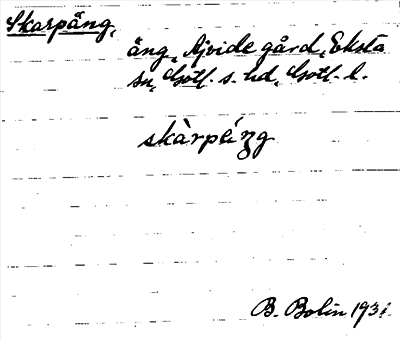 Skarpäng,
äng, Ajvide gård, Eksta
sn, Gotl. s. hd, Gotl. l.
skàrpéng
B. Bolin 1931